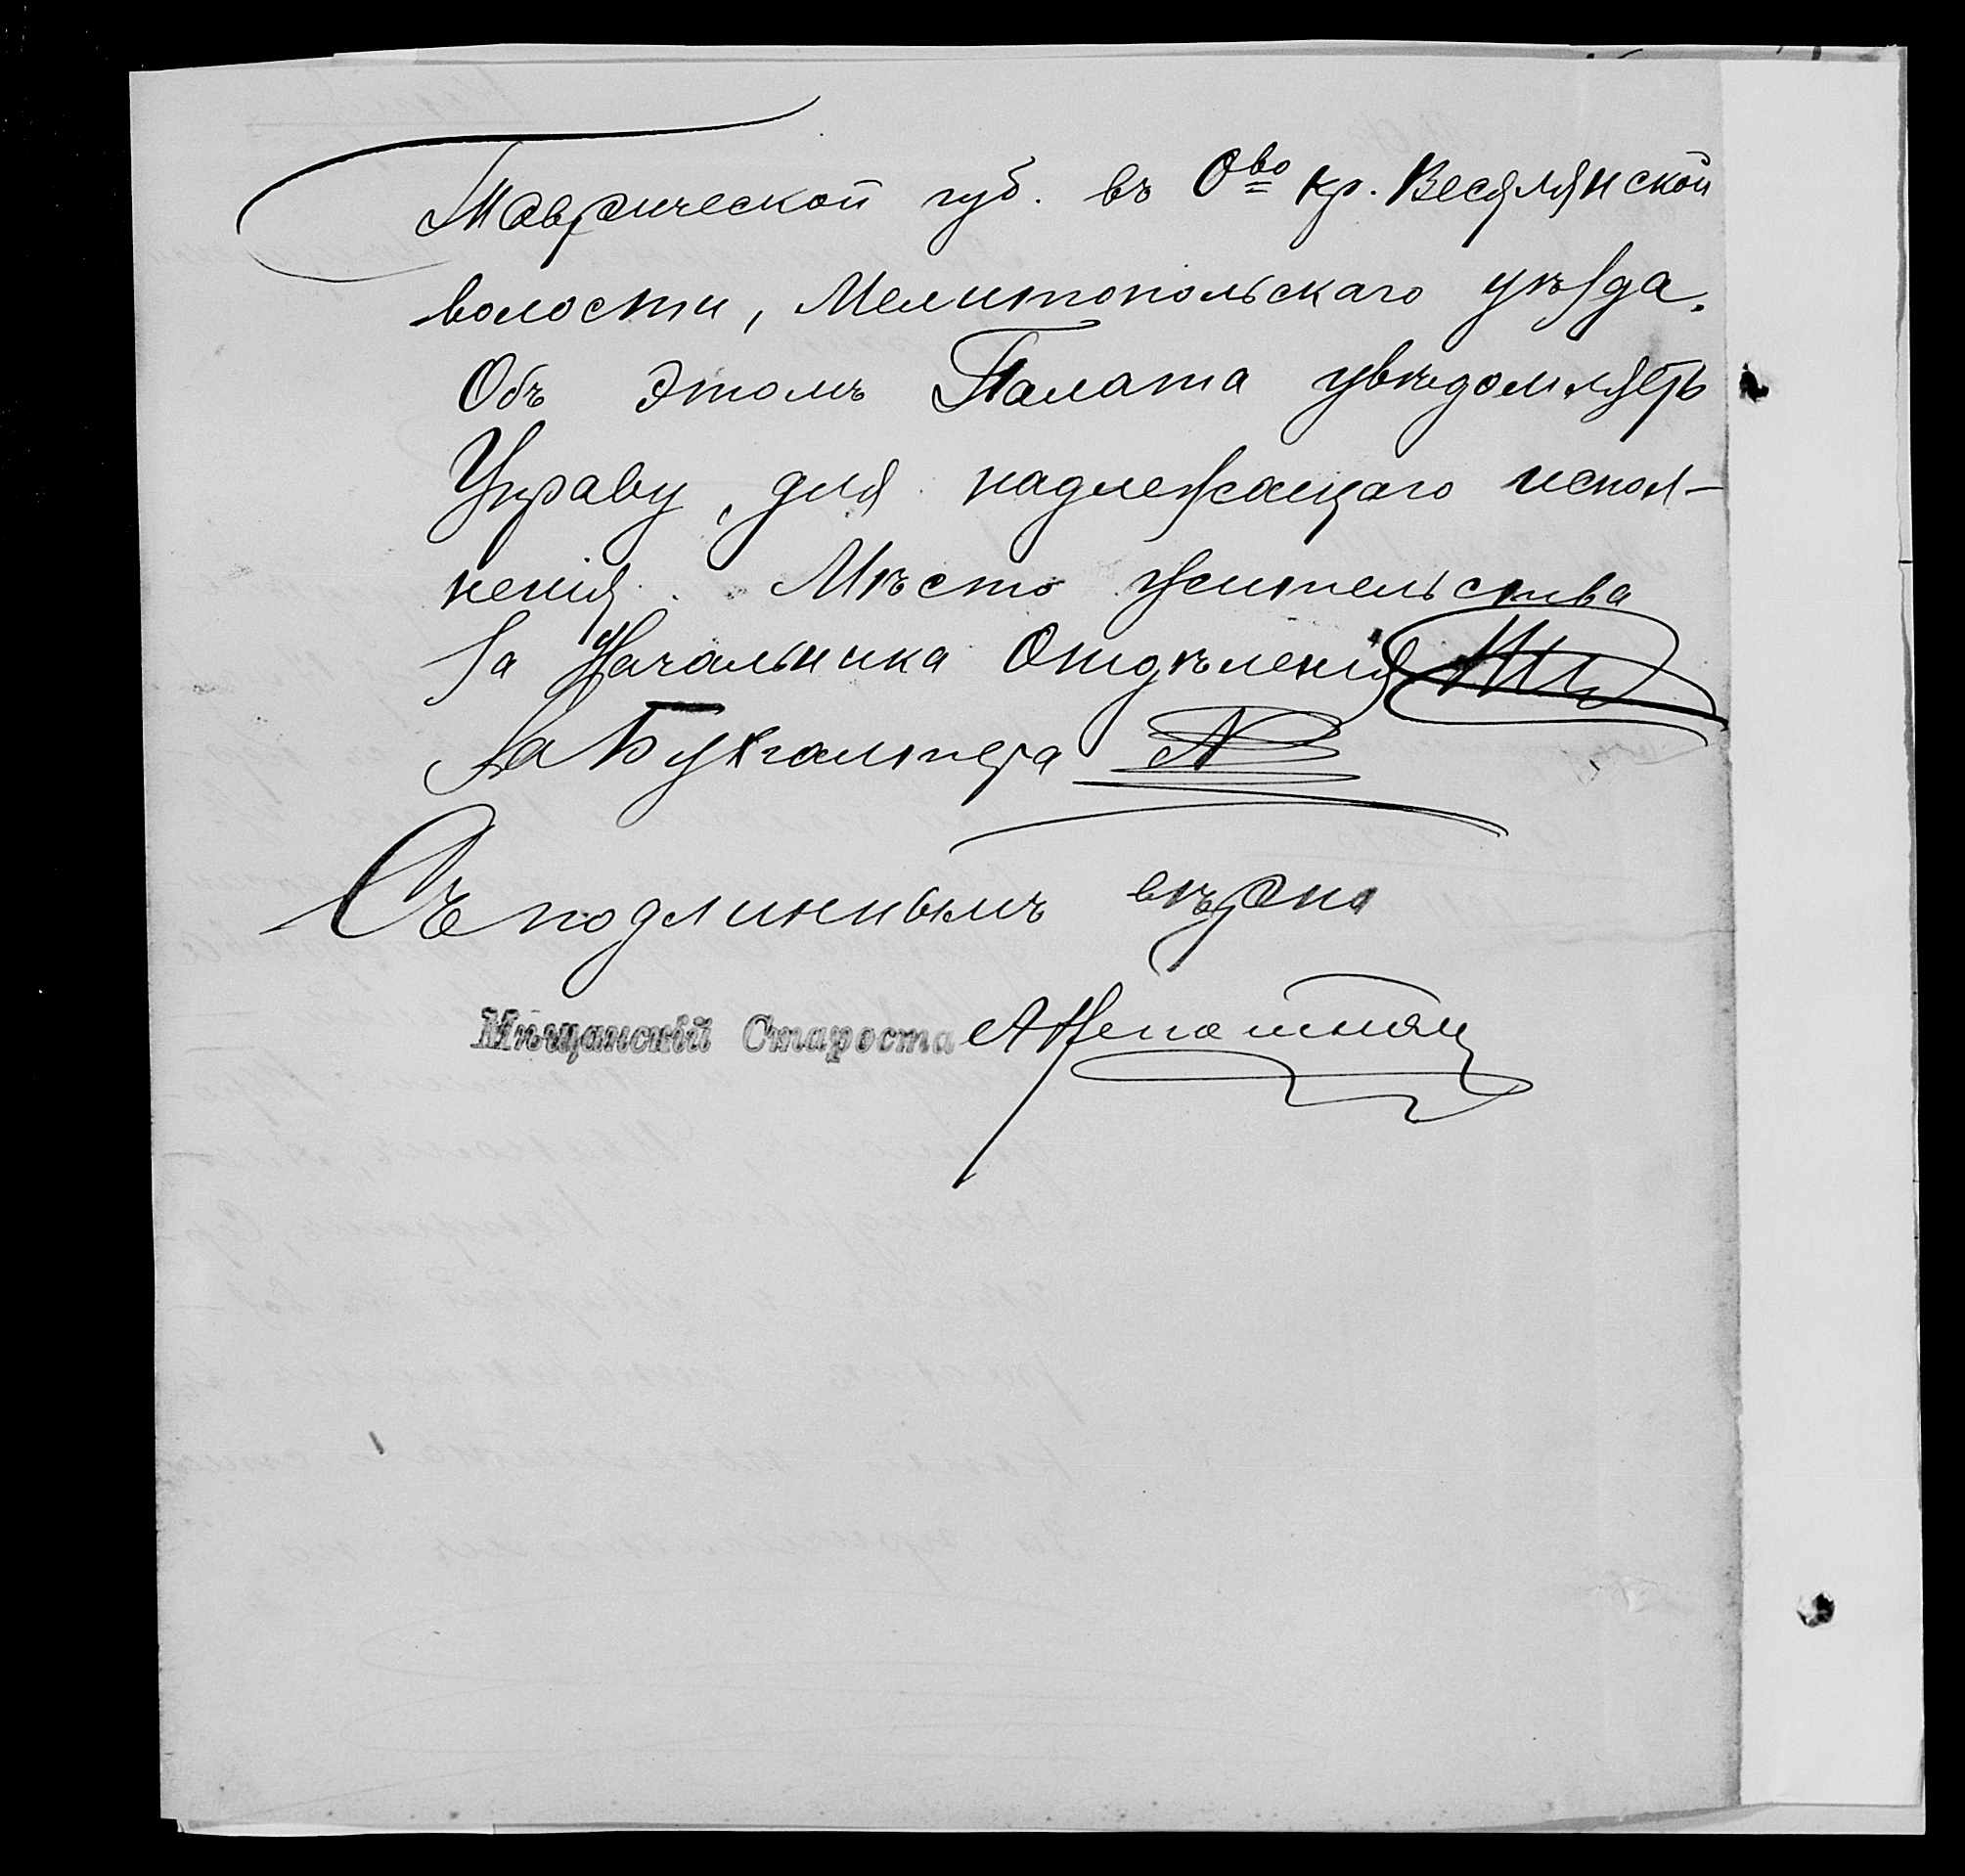 Таврической губ. въ О<sup>во</sup> кр. Веселянской
волости, Мелитопольскаго уѣзда.
Объ этомъ Палата увѣдомляетъ
Управу, для надлежащаго испол-
ненія. Мѣсто жительства
За Начальника Отдѣленія
За Бухгалтера
Съ подлиннымъ вѣрно
Мѣщанскій Староста